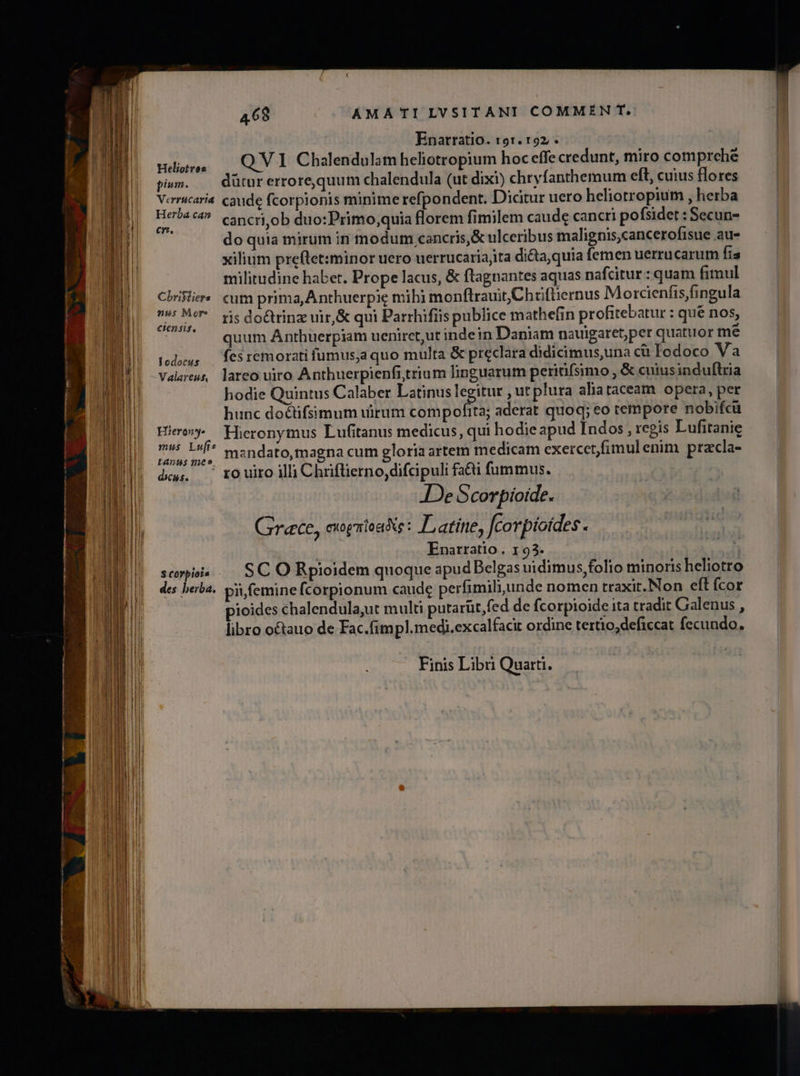 468 AMATI LVSITANI COMMENT.
Enarratio. 191. 192.
Heliotro=
pium.
Verrucaria
Herba can
cri.
QVI Chalendulam heliotropium hoc esse credunt, miro comprehē
dūtur errore, quum chalendula (ut dixi) chrysanthemum est, cuius flores
caudę scorpionis minime respondent. Dicitur uero heliotropium, herba
cancri, ob duo: Primo, quia florem similem caudę cancri possidet: Secun-
do quia mirum in modum cancris, & ulceribus malignis, cancerosisue au-
xilium pręstet: minor uero uerrucaria, ita dicta, quia semen uerrucarum si=
militudine habet. Prope lacus, & stagnantes aquas nascitur: quam simul
Christier=
nus Mor=
ciensis.
cum prima, Anthuerpię mihi monstrauit, Christiernus Morciensis, singula
ris doctrinæ uir, & qui Parrhisiis publice mathesin profitebatur: quē nos,
quum Anthuerpiam ueniret, ut inde in Daniam nauigaret, per quatuor mē
Iodocus
Valareus,
ses remorati sumus, a quo multa & pręclara didicimus, una cū Iodoco Va
lareo uiro Anthuerpiensi, trium linguarum peritissimo, & cuius industria
hodie Quintus Calaber Latinus legitur, ut plura alia taceam opera, per
hunc doctissimum uirum composita; aderat quoq; eo tempore nobiscū
Hierony=
mus Lusi=
tanus me=
dicus.
Hieronymus Lusitanus medicus, qui hodie apud Indos, regis Lusitanię
mandato, magna cum gloria artem medicam exercet, simul enim præcla-
ro uiro illi Christierno, discipuli facti summus.
De Scorpioide.
Græce, σκορπιοειδὲς: Latine, scorpioides.
Enarratio. 193.
Scorpioi=
des herba.
SCORpioidem quoque apud Belgas uidimus, folio minoris heliotro
pii, semine scorpionum caudę persimili, unde nomen traxit. Non est scor
pioides chalendula, ut multi putarūt, sed de scorpioide ita tradit Galenus,
libro octauo de Fac. simpl. medi. excalfacit ordine tertio, desiccat secundo.
Finis Libri Quarti.